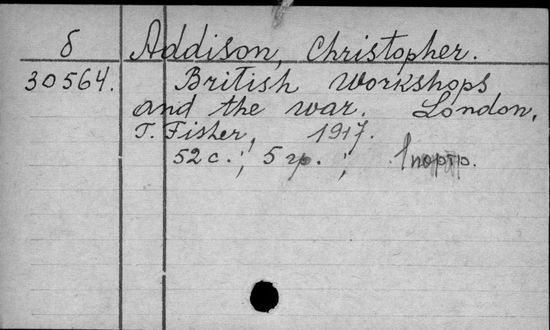 б Addison, Christopher.
30564. British Workshops
and the war. London,
T. Fisher, 1917.
52 с.; 5 гр.; 1 портр.